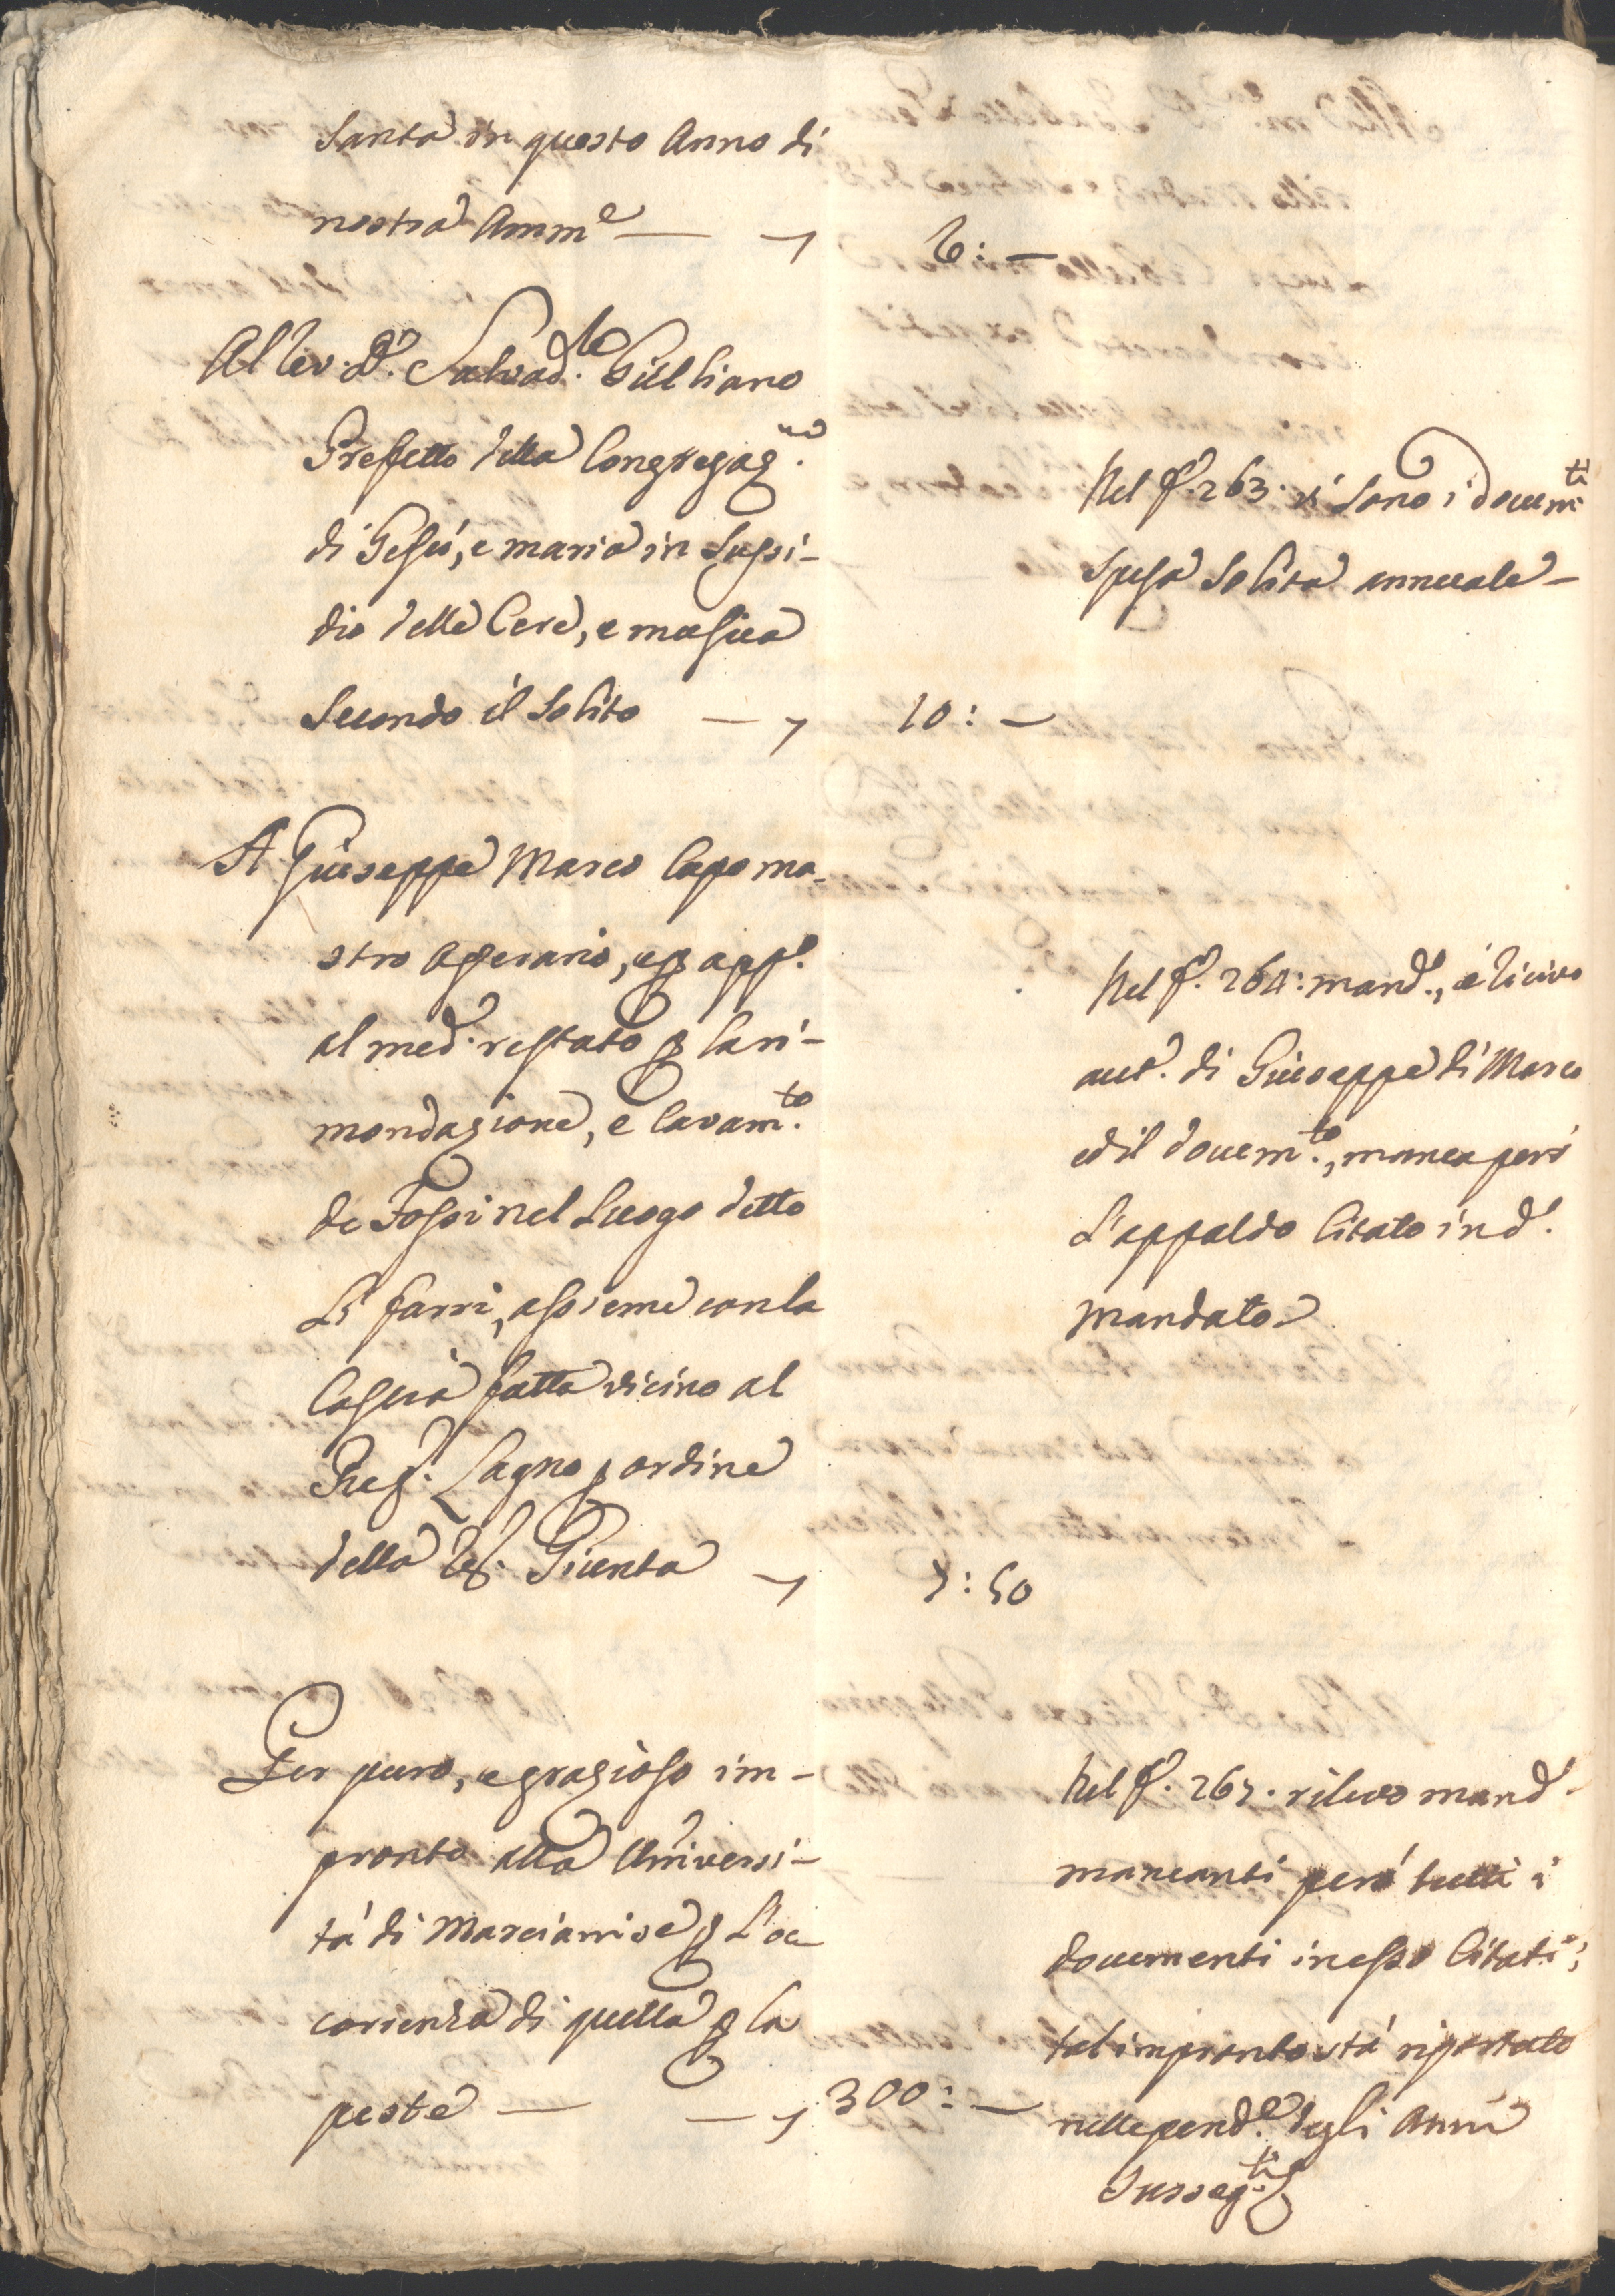 Santa in questo Anno di
nostra Amm.e — 6: —
Al Rev. D. Salvad.le Giulliano
Prefetto della Congregaz.ne
di Giesú, e maria in Sussi-
dio delle Cere, e musica
Secondo il Solito — 10: —
Nel f.º 263. vi sono i docum.ti
spesa solita annuale —
A Giuseppe Marco Capoma-
stro Operario, e p app.
al med.º restato p la ri-
mondazione, e Cavam.to
de Fossi nel Luogo detto
Li farri, assieme con la
Cascia fatta vicino al
Reg.º Lagno p ordine
della Giunta 7: 50
Nel f.º 264: mand.º, e ricivo
aut.º di Giuseppe di Marco
ed il docum.to, manca peró
L'appaldo Citato in d.º
mandato
Per puro, e grazioso im-
pronto alla Universi-
tá di Marcianise p L'oc
correnza di quella p la
peste — 300: —
Nel f.º 267. rilevo mand.º
mancanti peró tutti i
documenti in esso Citati;
tal impronto stá riportato
nelle pend.e degli Anni
Susseg.ti